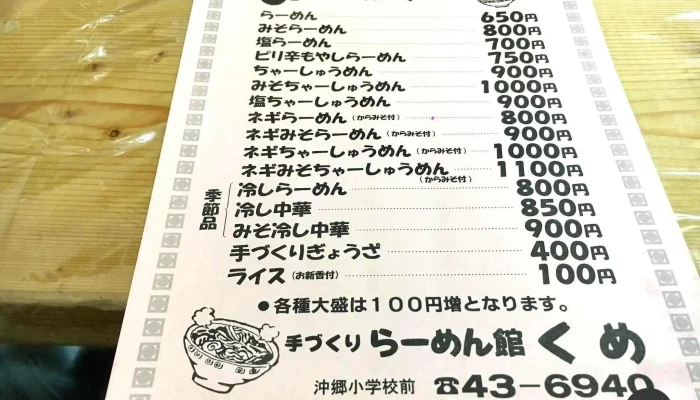 らーめん 650円
みそらーめん 800円
塩らーめん 700円
ピリ辛もやしらーめん 750円
ちゃーしゅうめん 900円
みそちゃーしゅうめん 1000円
塩ちゃーしゅうめん 900円
ネギらーめん（からみそ付） 800円
ネギみそらーめん（からみそ付） 900円
ネギちゃーしゅうめん（からみそ付） 1000円
ネギみそちゃーしゅうめん（からみそ付） 1100円
季節品
冷しらーめん 800円
冷し中華 850円
みそ冷し中華 900円
手づくりぎょうざ 400円
ライス（お新香付） 100円
●各種大盛は100円増となります。
手づくり らーめん館 くめ
沖郷小学校前 ☎43－6940